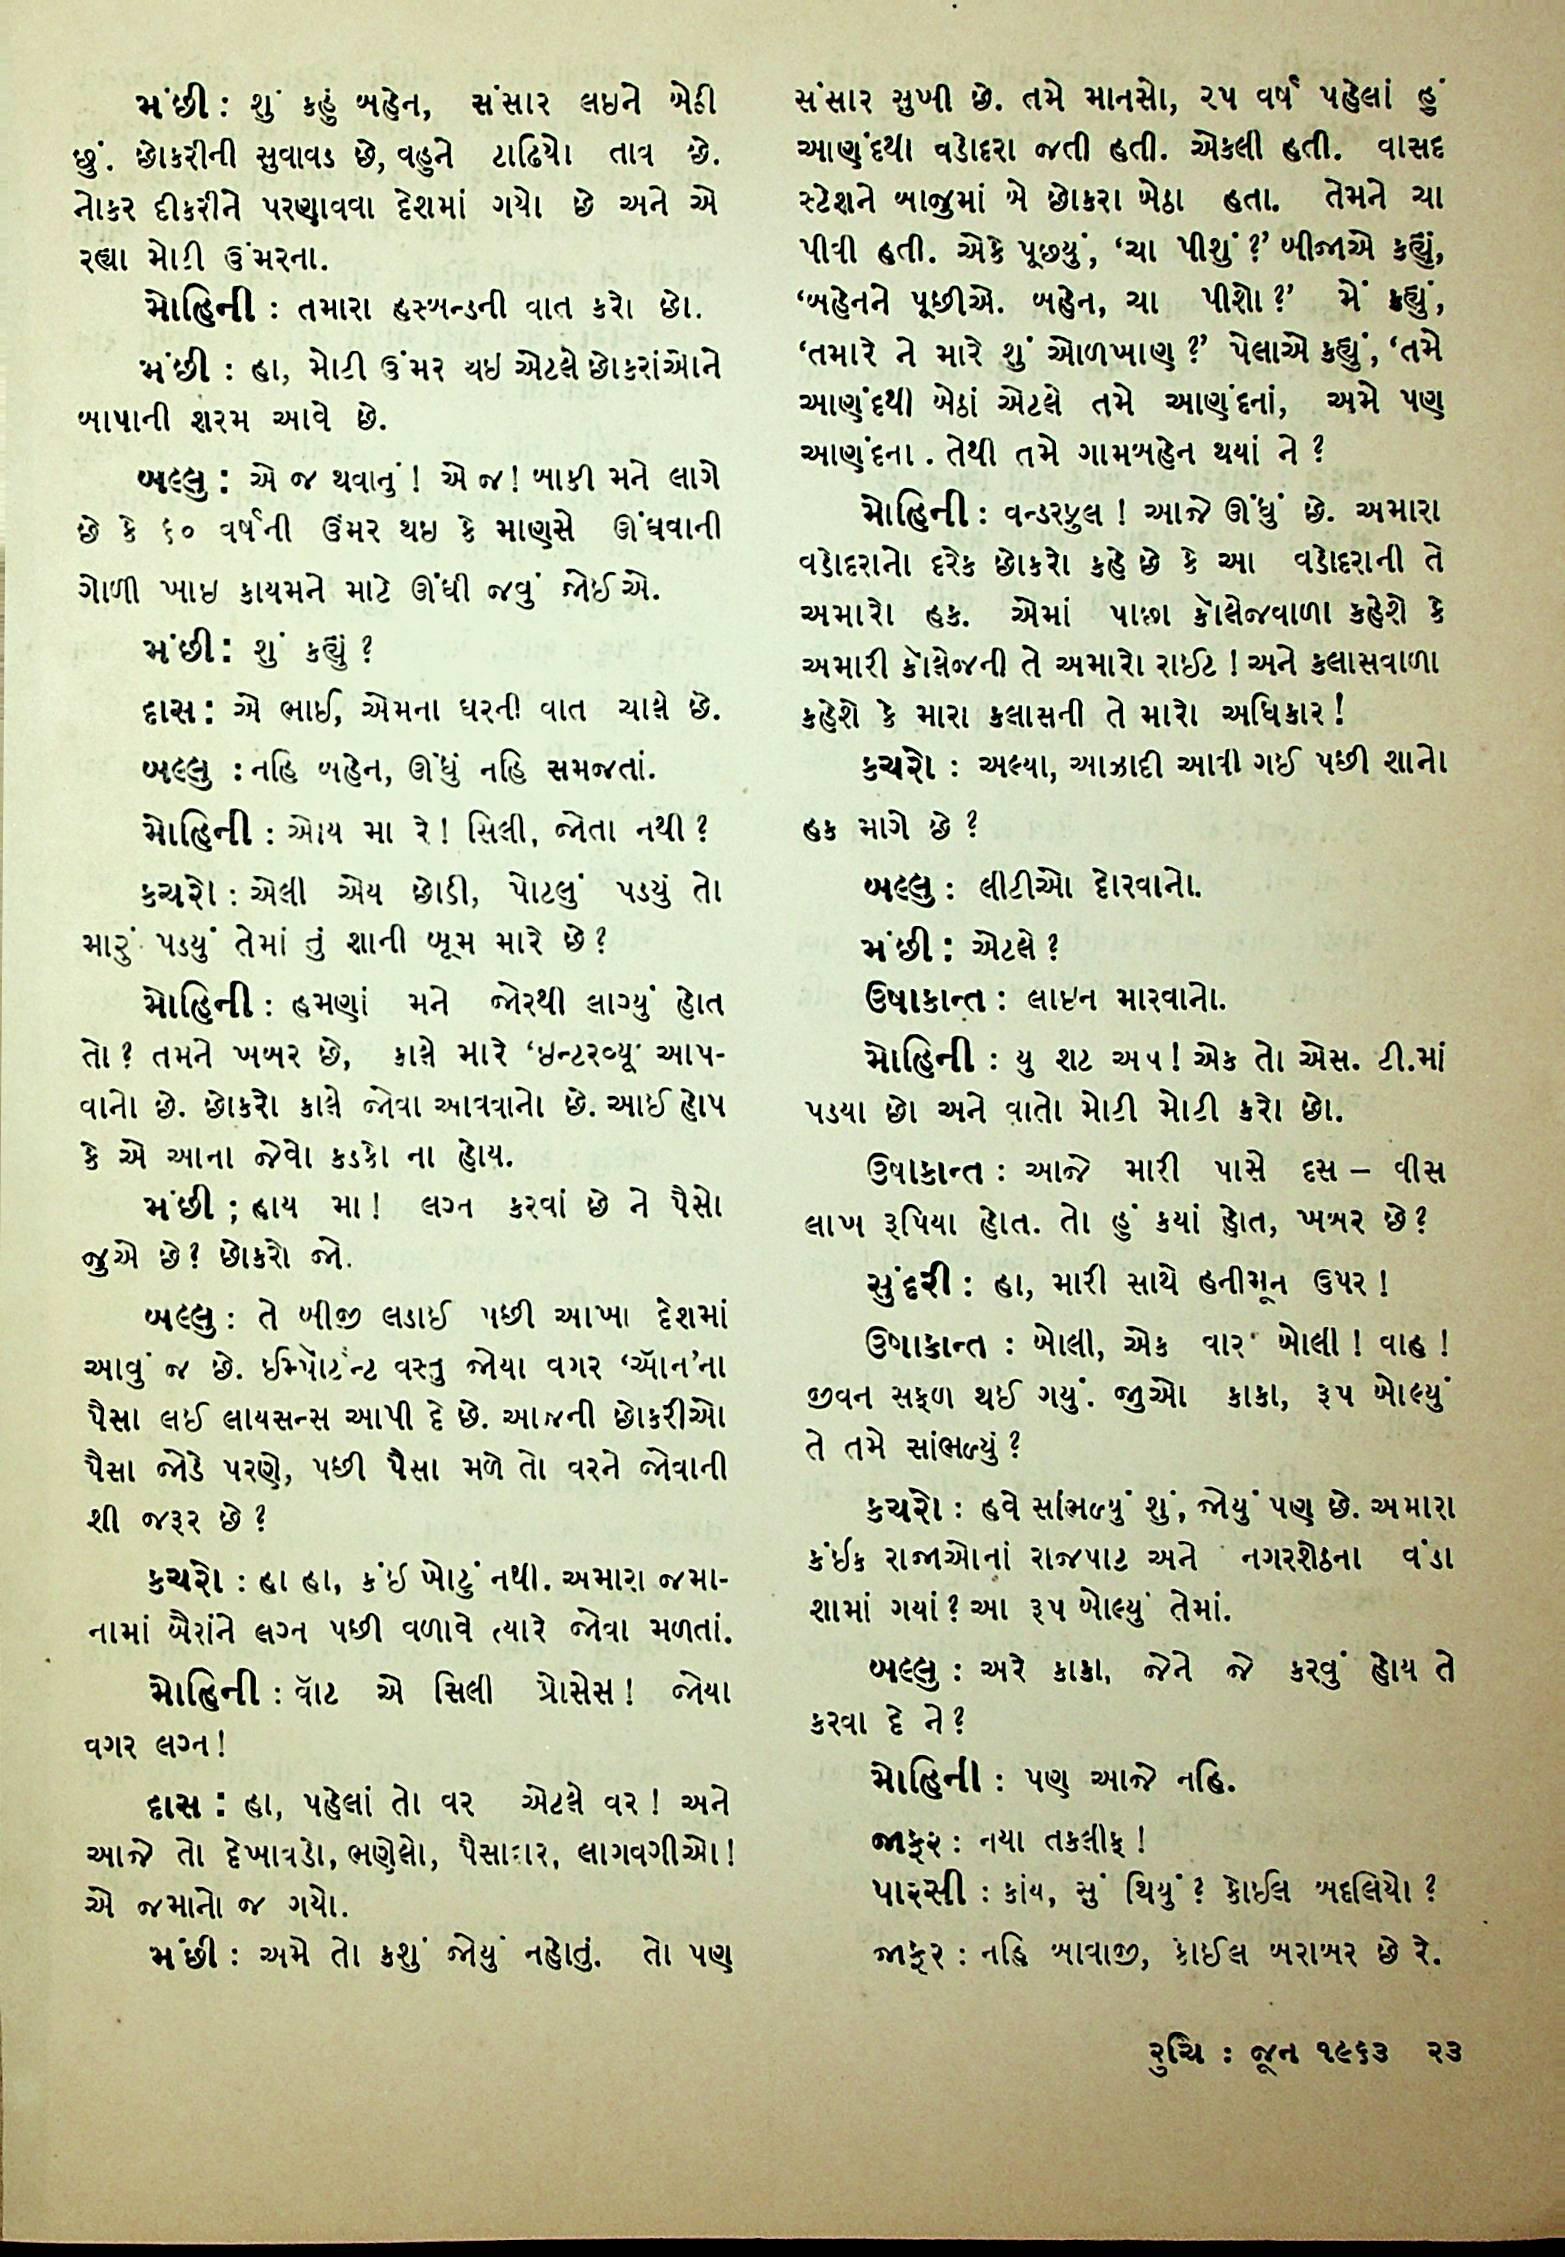 મંછી : શું કહું બહેન, સંસાર લઇને બેઠી
છું. છોકરીની સુવાવડ છે, વહુને ટાઢિયો તાવ છે.
નોકર દીકરીને પરણાવવા દેશમાં ગયો છે અને એ
રહ્યા મોટી ઉંમરના.
મોહિની : તમારા હસ્બન્ડની વાત કરો છો.
મંછી : હા, મોટી ઉંમર થઇ એટલે છોકરાંઓને
બાપાની શરમ આવે છે.
બલ્લુ : એ જ થવાનું ! એ જ ! બાકી મને લાગે
છે કે ૬૦ વર્ષની ઉંમર થઇ કે માણસે ઊંઘવાની
ગોળી ખાઇ કાયમને માટે ઊંઘી જવું જોઈએ.
મંછી : શું કહ્યું ?
દાસ : એ ભાઈ, એમના ઘરની વાત ચાલે છે.
બલ્લુ : નહિ બહેન, ઊંધું નહિ સમજતાં.
મોહિની : ઓય મા રે ! સિલી, જોતા નથી ?
કચરો : એલી એય છોડી, પોટલું પડયું તો
મારું પડયું તેમાં તું શાની બૂમ મારે છે ?
મોહિની : હમણાં મને જોરથી લાગ્યું હોત
તો ? તમને ખબર છે, કાલે મારે ‘ઇન્ટરવ્યૂ’ આપ-
વાનો છે. છોકરો કાલે જોવા આવવાનો છે. આઈ હોપ
કે એ આના જેવો કડકો ના હોય.
મંછી ; હાય મા ! લગ્ન કરવાં છે ને પૈસો
જુએ છે ? છોકરો જો.
બલ્લુ : તે બીજી લડાઈ પછી આખા દેશમાં
આવું જ છે. ઈમ્પોર્ટન્ટ વસ્તુ જોયા વગર ‘ઑન’ના
પૈસા લઈ લાયસન્સ આપી દે છે. આજની છોકરીઓ
પૈસા જોડે પરણે, પછી પૈસા મળે તો વરને જોવાની
શી જરૂર છે ?
કચરો : હા હા, કંઈ ખોટું નથી. અમારા જમા-
નામાં બૈરાંને લગ્ન પછી વળાવે ત્યારે જોવા મળતાં.
મોહિની : વૉટ એ સિલી પ્રોસેસ ! જોયા
વગર લગ્ન !
દાસ : હા, પહેલાં તો વર એટલે વર ! અને
આજે તો દેખાવડો, ભણેલો, પૈસાદાર, લાગવગીઓ !
એ જમાનો જ ગયો.
મંછી : અમે તો કશું જોયું નહોતું. તો પણ
સંસાર સુખી છે. તમે માનસો, ૨૫ વર્ષ પહેલાં હું
આણંદથી વડોદરા જતી હતી. એકલી હતી. વાસદ
સ્ટેશને બાજુમાં બે છોકરા બેઠા હતા. તેમને ચા
પીવી હતી. એકે પૂછયું, ‘ચા પીશું ?’ બીજાએ કહ્યું,
‘બહેનને પૂછીએ. બહેન, ચા પીશો ?’ મેં કહ્યું,
‘તમારે ને મારે શું ઓળખાણ ?’ પેલાએ કહ્યું, ‘તમે
આણંદથી બેઠાં એટલે તમે આણંદનાં, અમે પણ
આણંદના. તેથી તમે ગામબહેન થયાં ને ?
મોહિની : વન્ડરફુલ ! આજે ઊંધું છે. અમારા
વડોદરાનો દરેક છોકરો કહે છે કે આ વડોદરાની તે
અમારો હક. એમાં પાછા કૉલેજવાળા કહેશે કે
અમારી કૉલેજની તે અમારો રાઈટ ! અને કલાસવાળા
કહેશે કે મારા કલાસની તે મારો અધિકાર !
કચરો : અલ્યા, આઝાદી આવી ગઈ પછી શાનો
હક માગે છે ?
બલ્લુ : લીટીઓ દોરવાનો.
મંછી : એટલે ?
ઉષાકાન્ત : લાઇન મારવાનો.
મોહિની : યુ શટ અપ ! એક તો એસ. ટી.માં
પડયા છો અને વાતો મોટી મોટી કરો છો.
ઉષાકાન્ત : આજે મારી પાસે દસ – વીસ
લાખ રૂપિયા હોત. તો હું કયાં હોત, ખબર છે ?
સુંદરી : હા, મારી સાથે હનીમૂન ઉપર !
ઉષાકાન્ત : બોલી, એક વાર બોલી ! વાહ !
જીવન સફળ થઈ ગયું. જુઓ કાકા, રૂપ બોલ્યું
તે તમે સાંભળ્યું ?
કચરો : હવે સાંભળ્યું શું, જોયું પણ છે. અમારા
કંઈક રાજાઓનાં રાજપાટ અને નગરશેઠના વંડા
શામાં ગયાં ? આ રૂપ બોલ્યું તેમાં.
બલ્લુ : અરે કાકા, જેને જે કરવું હોય તે
કરવા દે ને ?
મોહિની : પણ આજે નહિ.
જાફર : નયા તકલીફ !
પારસી : કાંય, સું થિયું ? કોઈલ બદલિયો ?
જાફર : નહિ બાવાજી, કોઈલ બરાબર છે રે.
રુચિ : જૂન ૧૯૬૩ ૨૩